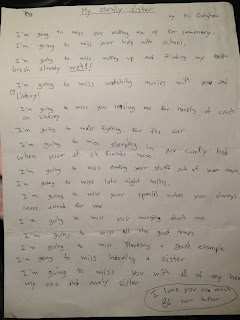 My ownly sister
by Eli
I'm going to miss you waking me up for seminary.
I'm going to miss your help with school.
I'm going to miss waking up and finding my tooth
brush already wet!!
I'm going to miss watching movies with you and
I'm going to miss you for
on
I'm going to miss fighting for the car
I'm going to miss sleeping in you comfy bed
when your at a friends house
I'm going to miss eating your stuff out of your room
I'm going to miss late night talks.
I'm going to miss your special notes you always
leave around for me
I'm going to miss you worrying about me
I'm going to miss all the good times
I'm going to miss having a good example
I'm going to miss having a sister
I'm going to miss you with all of my heart
my one and ownly sister
I love you so much
your brother